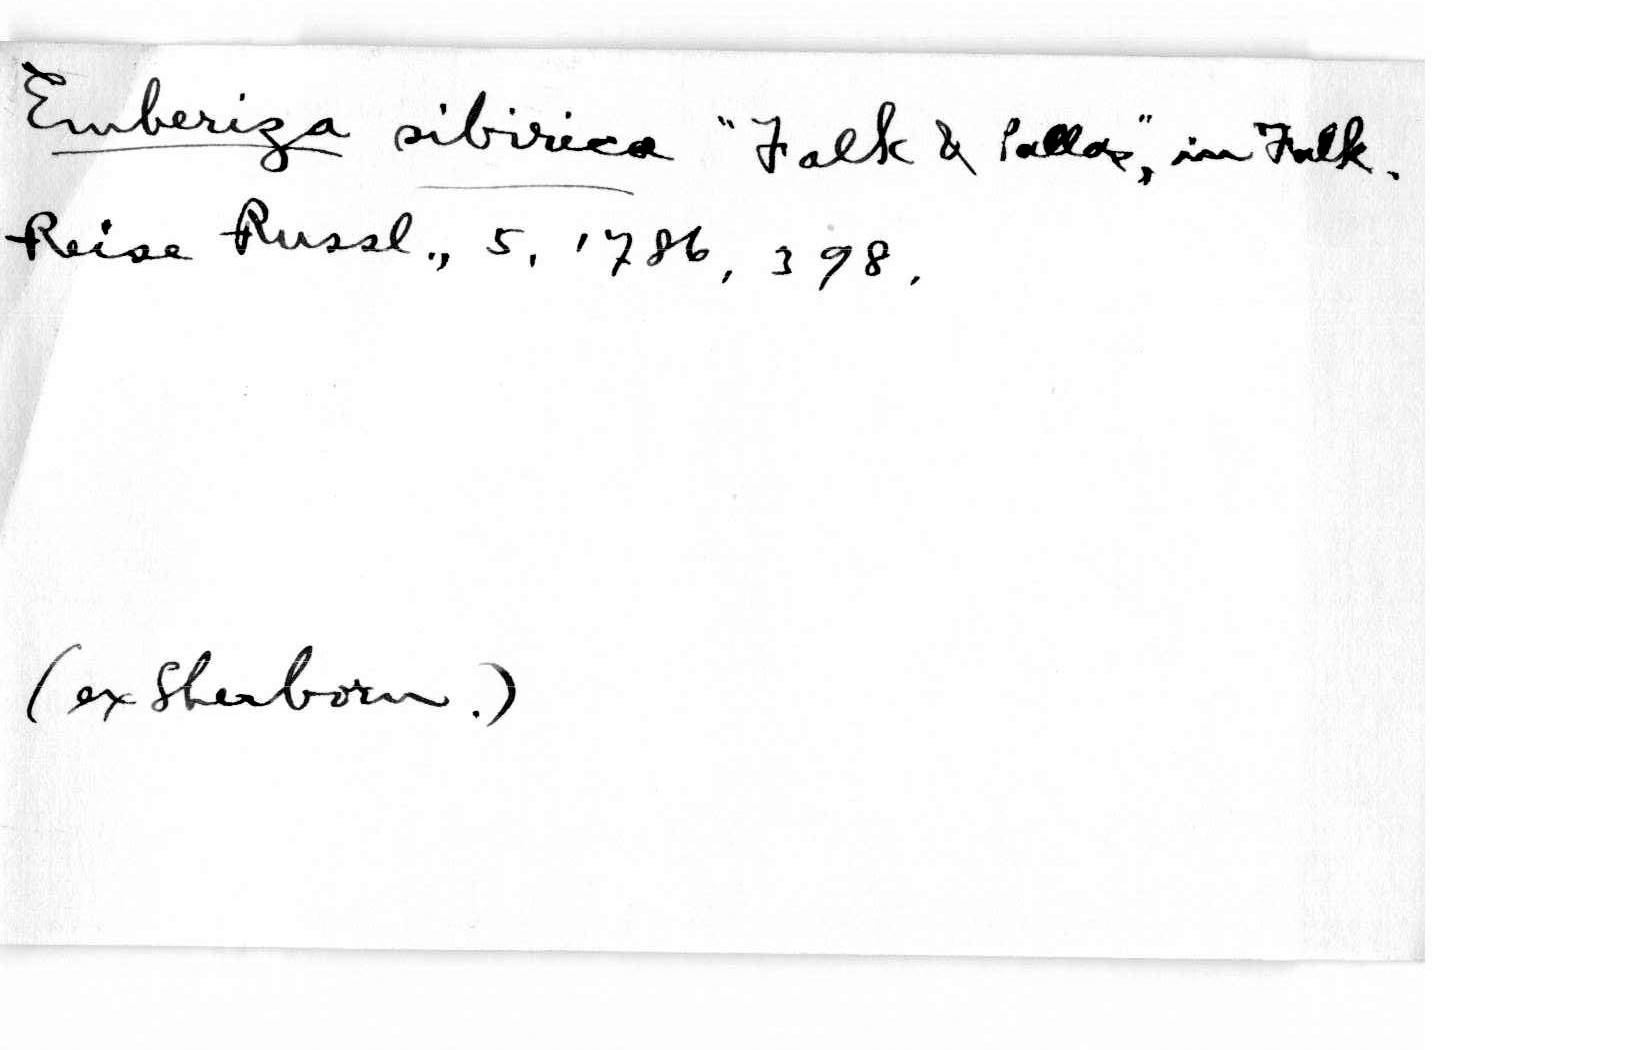 Emberiza sibirica "Falk & Pallas", in Falk.
Reise Russl., 5, 1786, 398.
(ex Sherborn.)